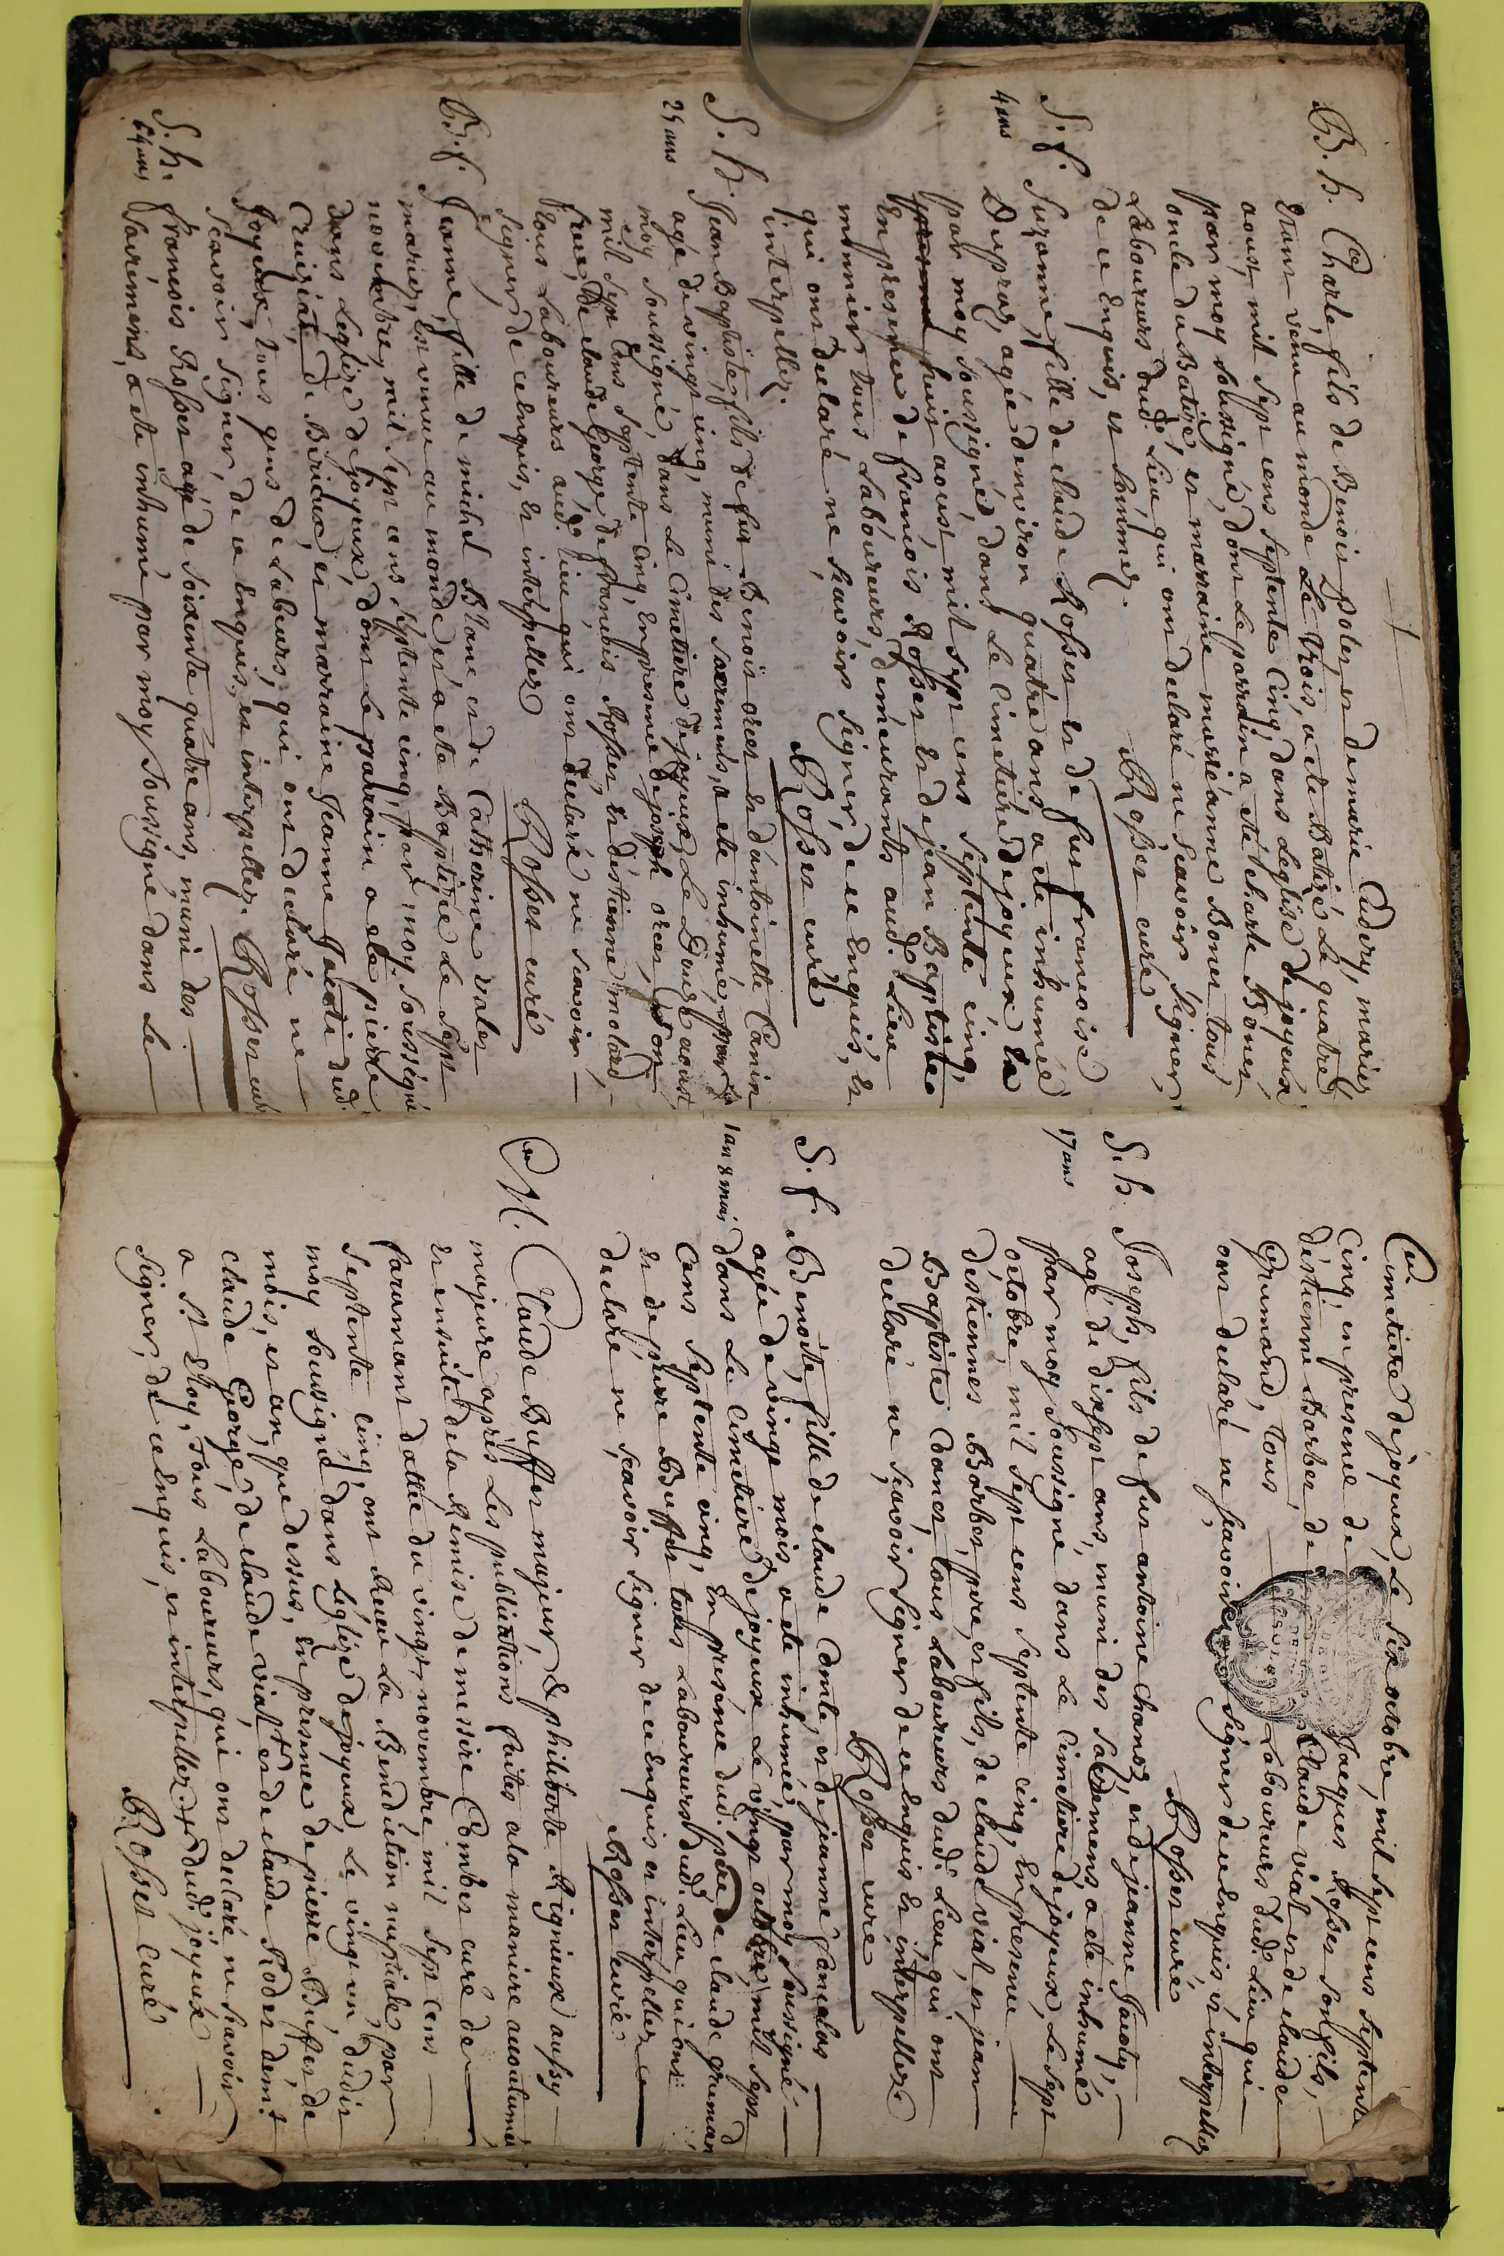 B. h. Charle, fils de Benoit Polet, et de marie Cudery, mariez
Etant venu au monde Le trois, a ete Batizé Le quatre
aoust, mil sept cens septente Cinq, dans Leglise de joyeux
par moy soussigné, dont Le parrain a eté charle Bonet
oncle du Batizé, et marraine marieanne Bonet tous
Laboureurs dud. Lieu qui ont declaré ne scavoir signer,
de ce Enquis, et sommez.
Rosset curé
S. f. Suzanne, fille de claude Rosset et de feu francoise
4 ans Dupraz, agée denviron quatre ans, a ete inhumée
par moy soussigné, dans Le Cimetiere de joyeux, Le
huit aoust, mil sept cens septente cinq,
En presence de francois Rosset et de jean Baptiste
monnier tous Laboureurs, demeurants aud. Lieu
qui ont declaré ne scavoir signer, de ce Enquis, et
interpellez.
Rosset curé
S. h. Jean Baptiste, fils de feu Benoit orcet et d'antoinette Canin
25 ans agé de vingt cinq, muni des sacrements, a ete inhumé, par
moy soussigné, dans Le Cimetiere de joyeux, Le Douze aoust
mil sept cens septente cinq, En presence de joseph orcet, son
frere, De claude George de francois Rosset et d'estienne molard,
tous Laboureurs aud. lieu, qui ont declaré ne scavoir
signer, de ce Enquis, et interpellez
Rosset curé
B. f. Jeanne, fille de michel Blanc et de Catherine valet
mariez, Est venue au monde et a ete Baptizée Le sept
novembre, mil sept cens septente cinq, par moy soussigné
dans Leglize de joyeux, dont Le parrain a ete pierre
Cruiziat de Birieux, et marraine Jeanne Jacoti dud.
Joyeux, tous gens de Labeurs, qui ont declaré ne
scavoir signer, de ce Enquis, et interpellez. Rosset curé
S. h. francois Rosset agé de soixente quatre ans, muni des
64 ans sacrémens, a ete inhumé par moy soussigné dans Le
Cimetiere de joyeux, Le six octobre, mil sept cens septente
cinq, en presence de Jacques Rosset son fils,
d'estienne Barbet de Claude vial et de claude
Grumand, tous Laboureurs dud. Lieu qui
ont declaré ne scavoir signer de ce Enquis, et interpellez
Rosset curé
S. h. Joseph, fils de feu antoine chanoz, et de jeanne Jacoty,
17 ans agé de dixsept ans, muni des sacremens a ete inhumé
par moy soussigné dans Le Cimetiere de joyeux, Le sept
octobre, mil sept cens septente cinq, En presence
d'estiennes Barbet, pere, et fils, de claude vial, et jean
Baptiste Danet, tous Laboureurs dud. Lieu, qui ont
declaré ne scavoir signer de ce Enquis et interpellez
Rosset curé
S. f. Benoite, fille de claude Comte, et de jeanne
1 an 8 mois agée de vingt mois a ete inhumée, par moy soussigné
dans Le Cimetiere de joyeux Le vingt octobre, mil sept
Cens septente cinq, En presence dud. pere de claude grumand
et de pierre Buffet tous Laboureurs dud. Lieu qui ont
declaré ne, scavoir signer de ce Enquis et interpellez
Rosset curé
M. Claude Buffet majeur, & philiberte Rignieux aussy
majeure aprés Les publications faites a la maniere accoutumé
et ensuite de la Remise de messire Combet curé de
faramant dattée du vingt novembre, mil sept cens
septente cinq, ont Receu La Benediction nuptiale par
moy soussigné dans Léglize de joyeux, Le vingt un, dudit
mois, et an, que dessus, En presence de pierre Buffet de
claude George, de claude vial + et de claude Rodet dem.t
a S.t Eloy, Tous Laboureurs, qui ont declaré ne scavoir
signer, de ce Enquis, et interpellez + dud. joyeux
Rosset curé